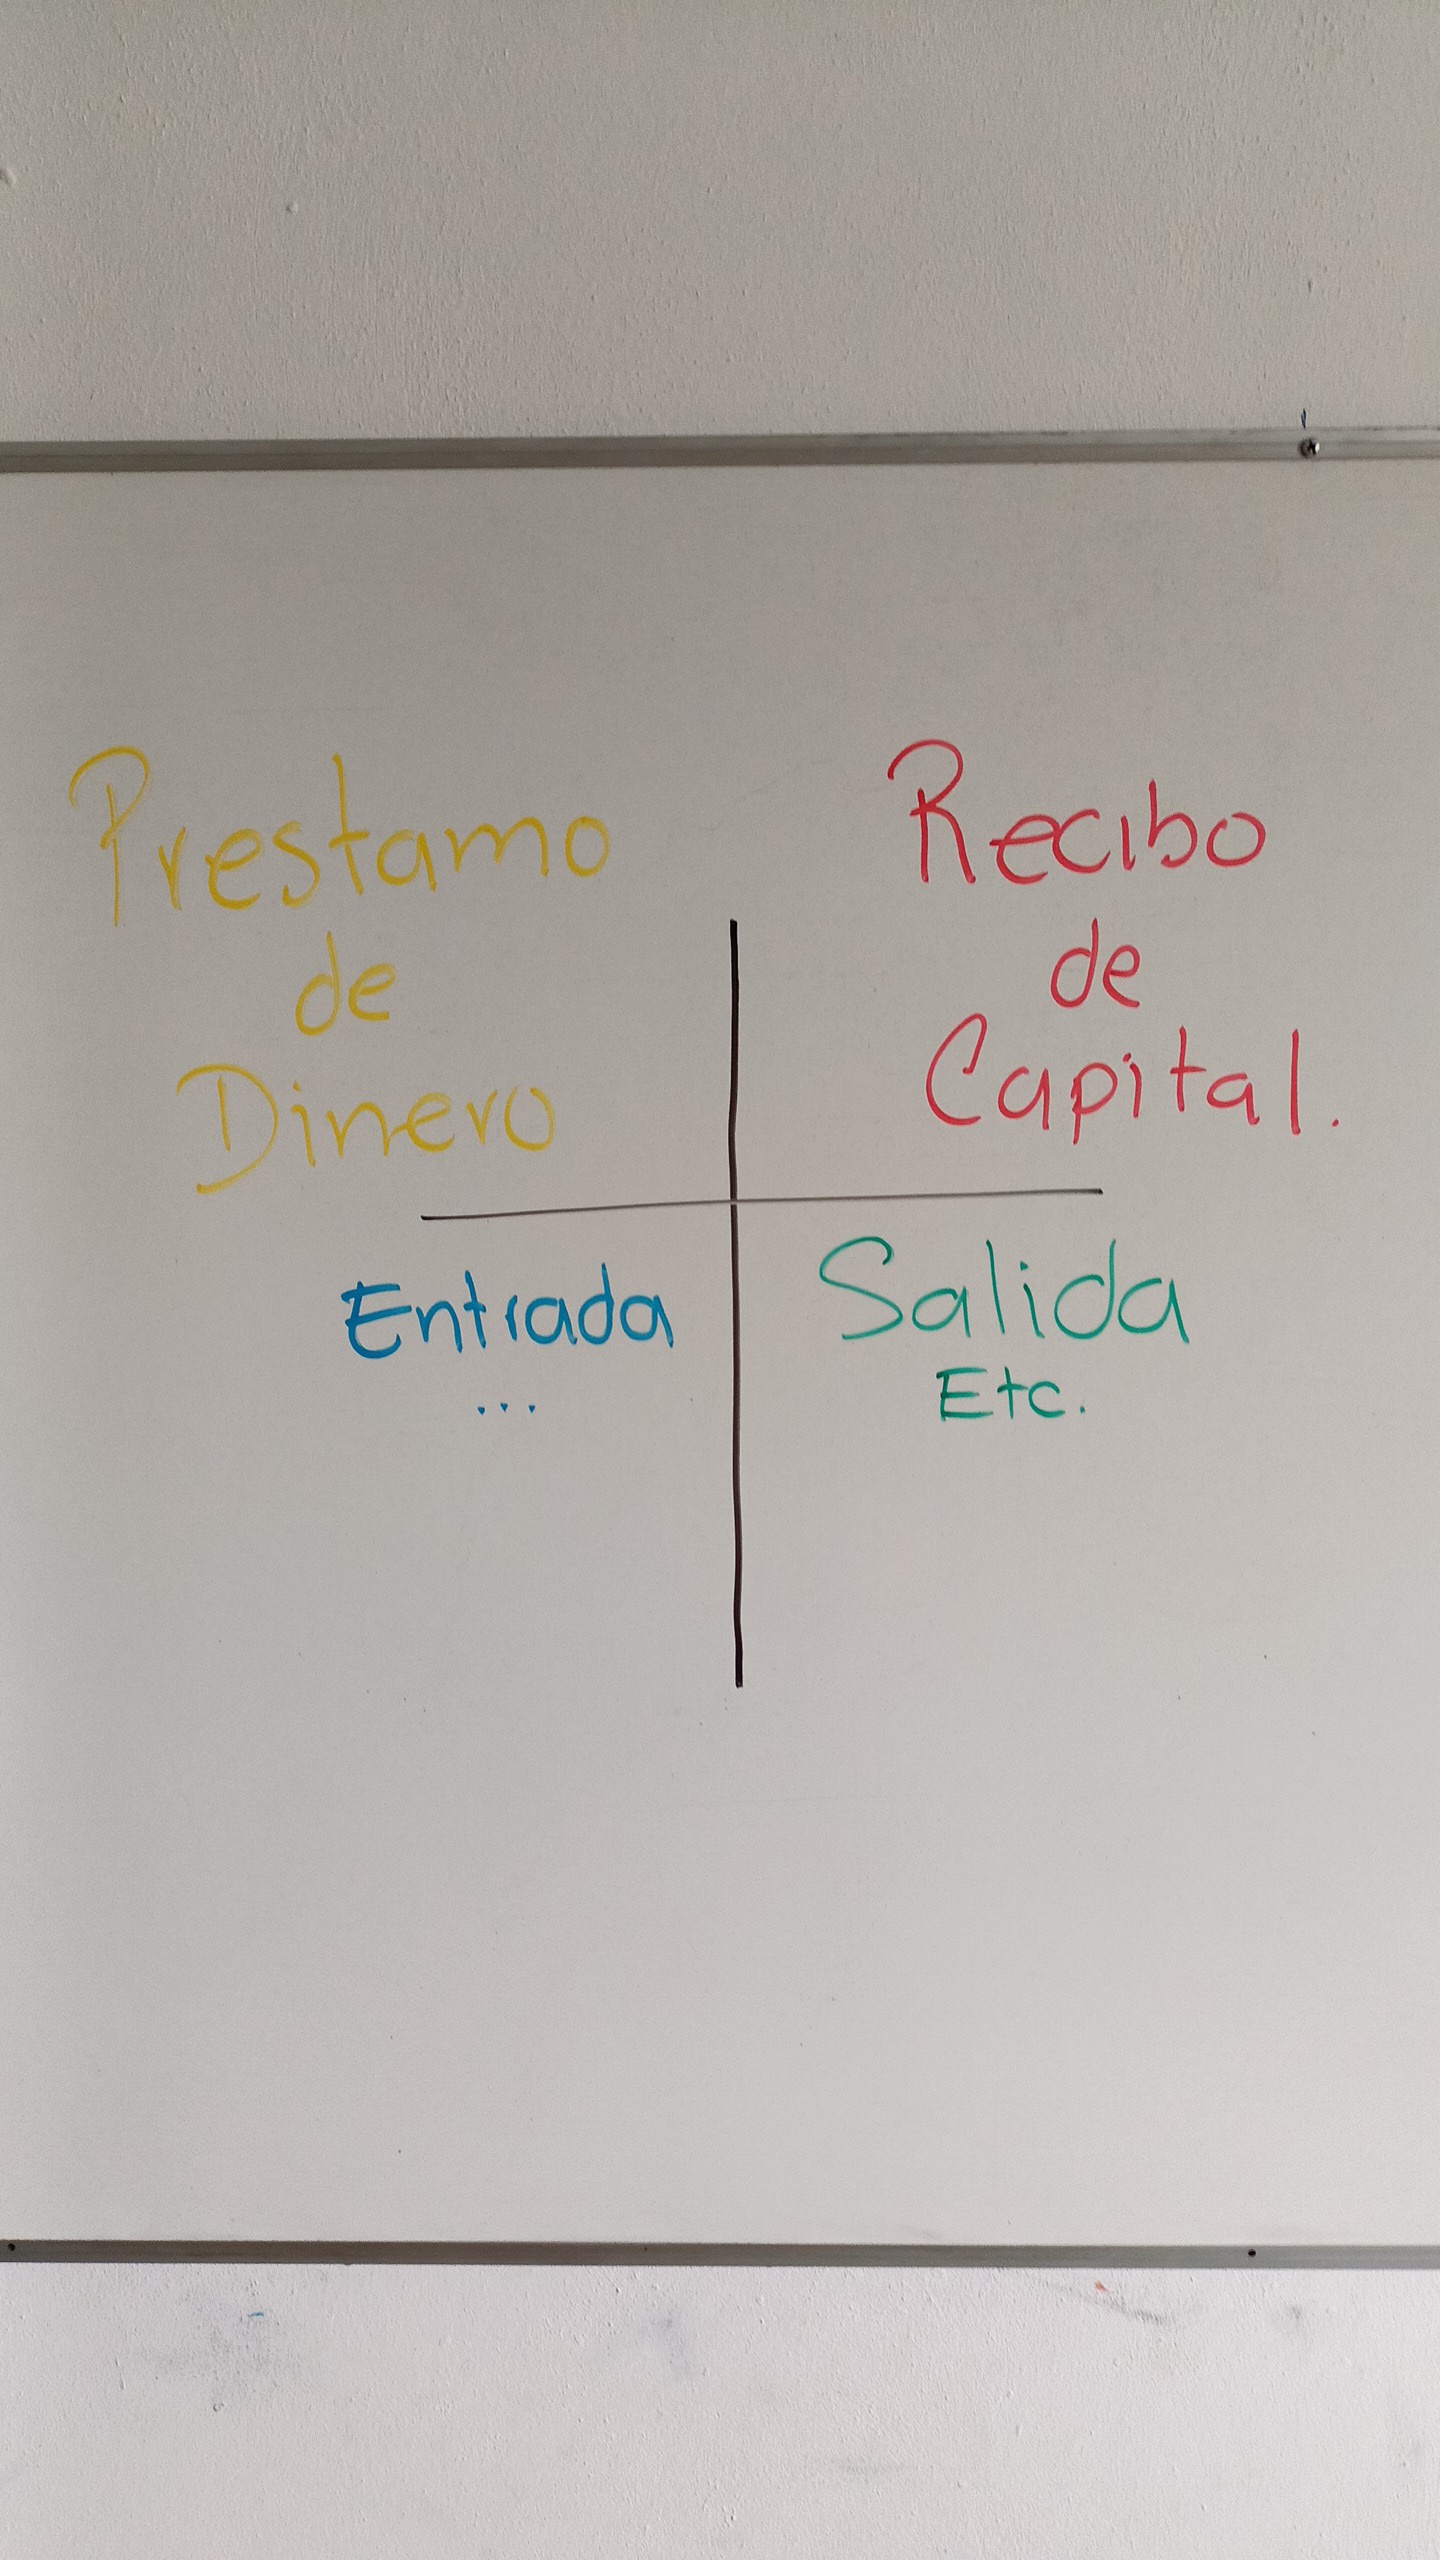 Prestamo
de
Dinero
Recibo
de
Capital.
Entrada
...
Salida
Etc.